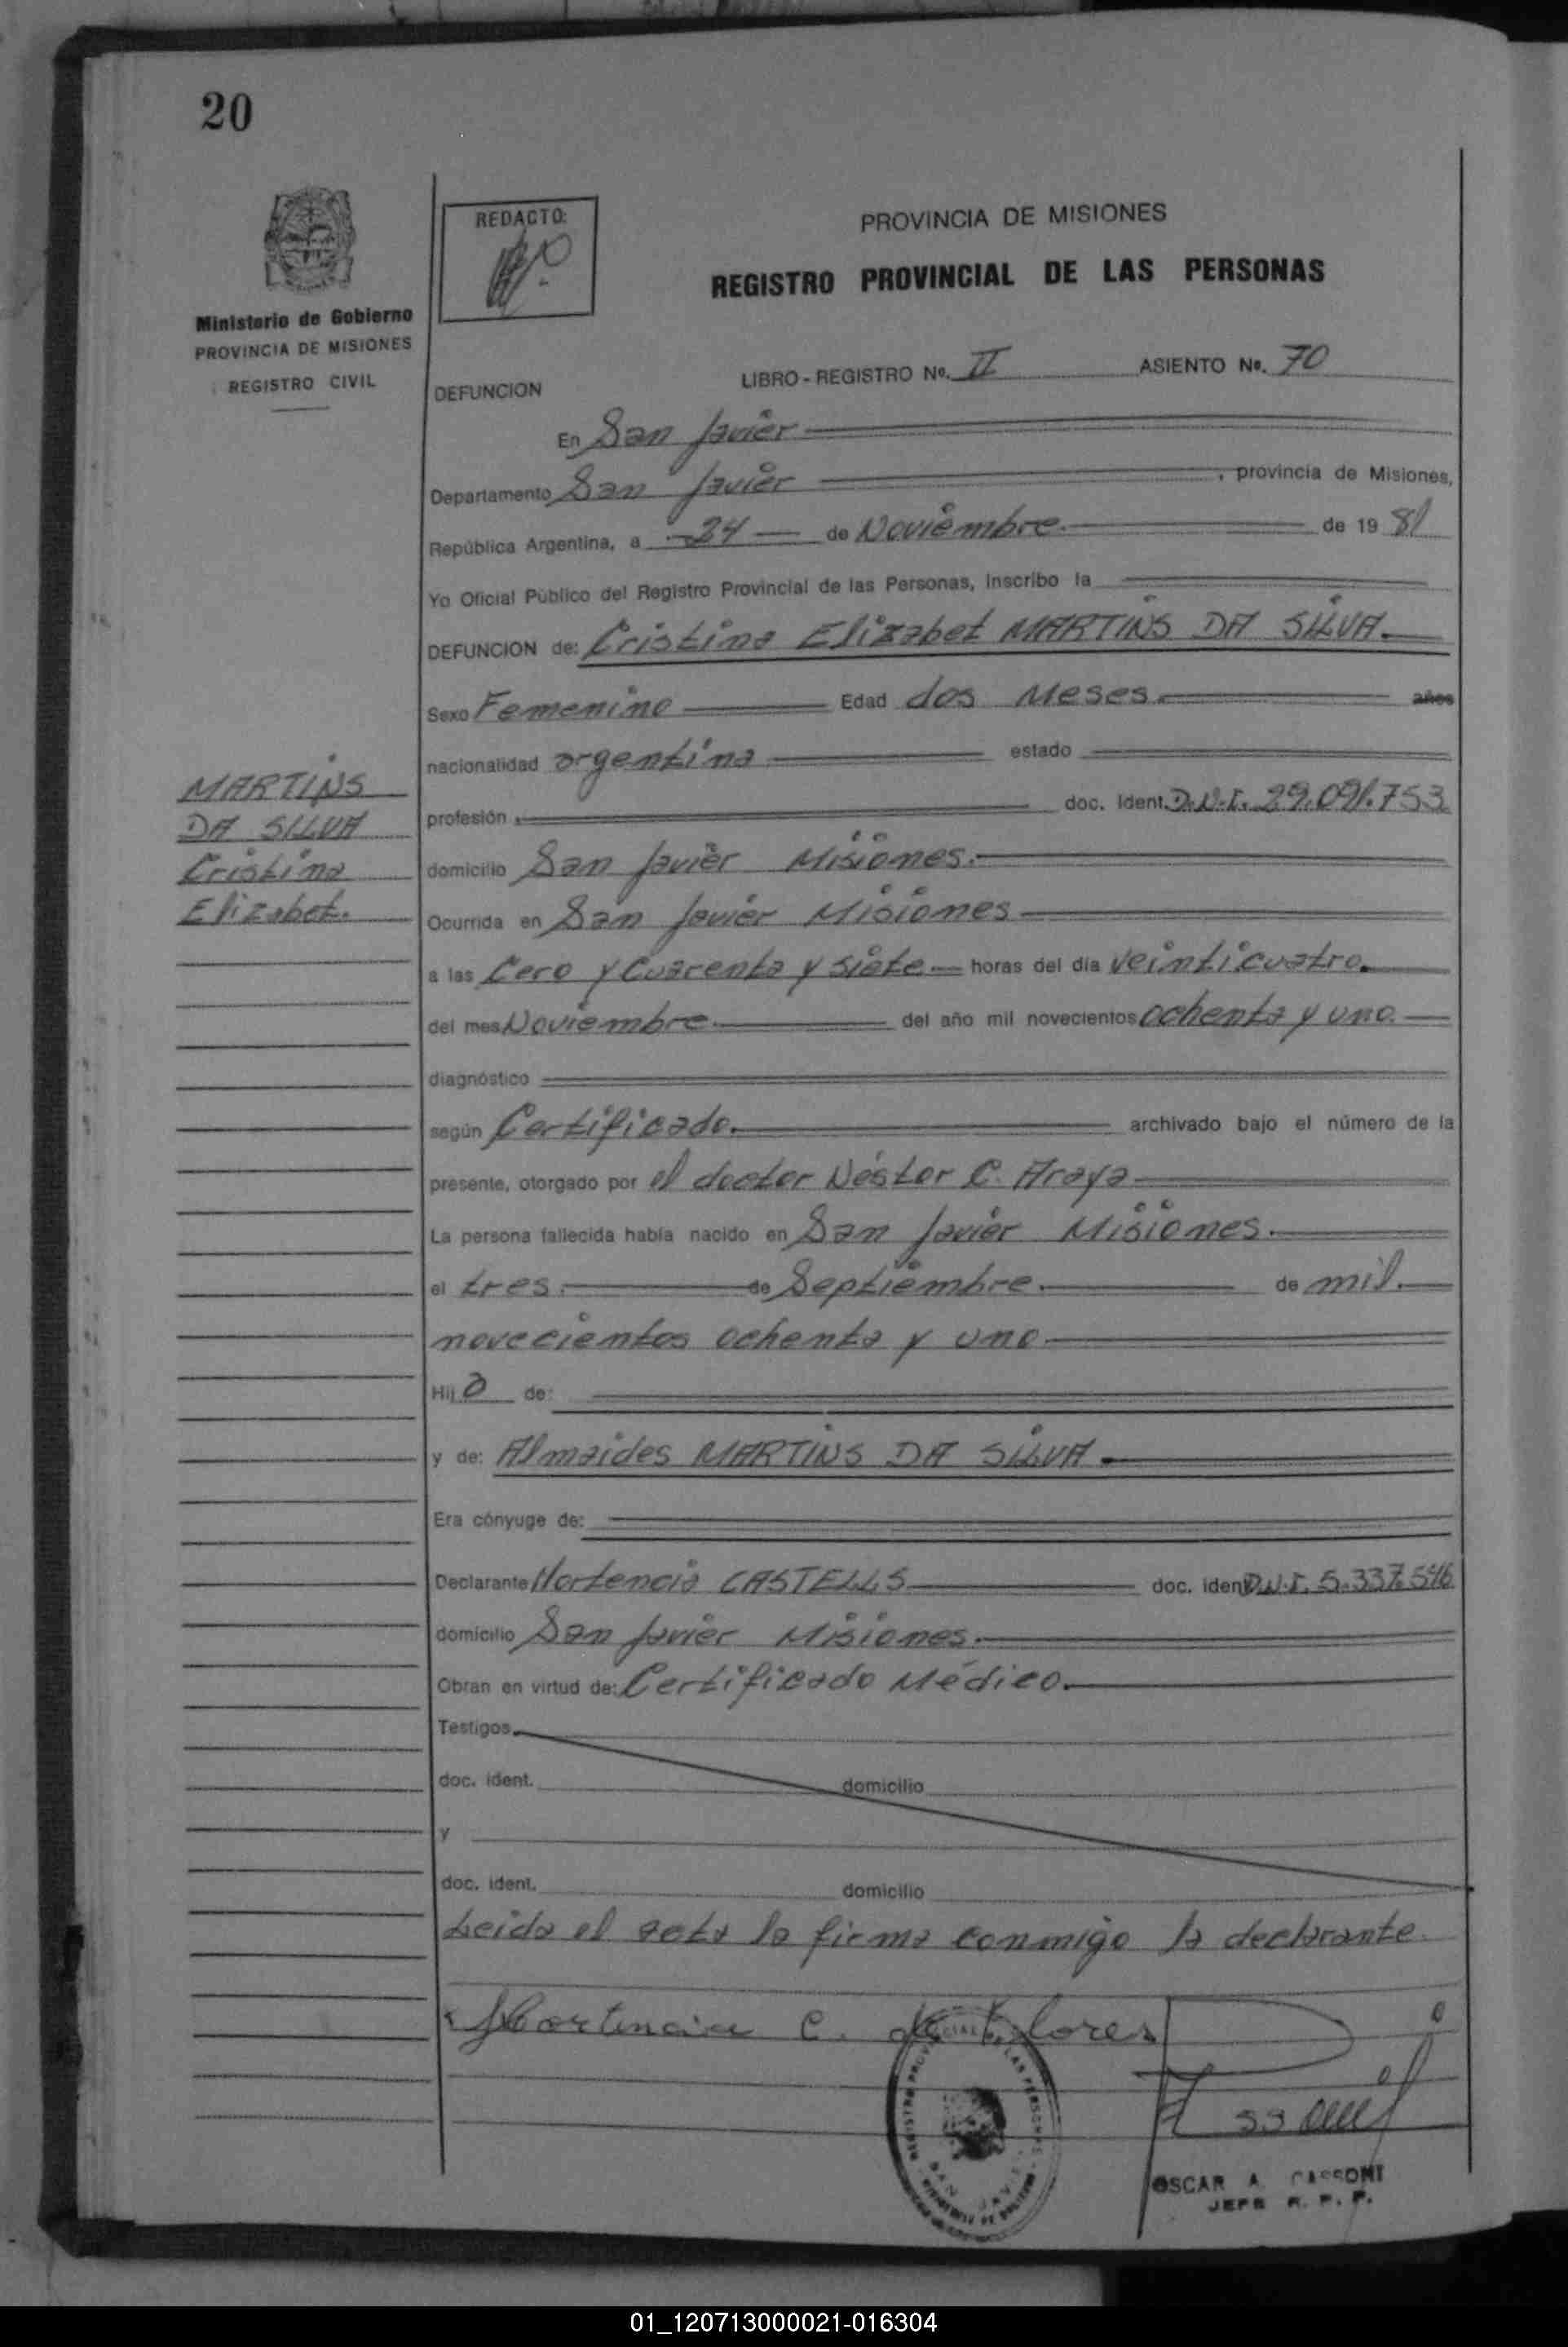 20
Ministerio de Gobierno
PROVINCIA DE MISIONES
REGISTRO CIVIL
REDACTO:
PROVINCIA DE MISIONES
REGISTRO PROVINCIAL DE LAS PERSONAS
DEFUNCION LIBRO - REGISTRO Nº. II ASIENTO Nº. 70
En San Javier
Departamento San Javier , provincia de Misiones,
República Argentina, a 24 de Noviembre de 19 81
Yo Oficial Público del Registro Provincial de las Personas, inscribo la
DEFUNCION de: Cristina Elizabet MARTINS DA SILVA.
Sexo Femenino Edad dos Meses. años
nacionalidad argentina estado
profesión doc. Ident. D.N.I. 29.091.753
domicilio San Javier Misiones.
Ocurrida en San Javier Misiones
a las Cero y Cuarenta y siete horas del día veinticuatro.
del mes Noviembre. del año mil novecientos ochenta y uno.
diagnóstico
según Certificado. archivado bajo el número de la
presente, otorgado por el doctor Néstor C. Araya
La persona fallecida había nacido en San Javier Misiones.
el tres. de Septiembre. de mil.
novecientos ochenta y uno
Hij a de:
y de: Almaides MARTINS DA SILVA.
Era cónyuge de:
Declarante Hortencia CASTELLS doc. iden D.N.I. 5.337.546
domicilio San Javier Misiones.
Obran en virtud de: Certificado Médico.
Testigos
doc. ident. domicilio
y
doc. ident. domicilio
Leida el acta la firma conmigo la declarante.
Hortencia C. de Flores
MARTINS
DA SILVA
Cristina
Elizabet.
OSCAR A. CASSONI
JEFE R. P. P.
01_120713000021-016304